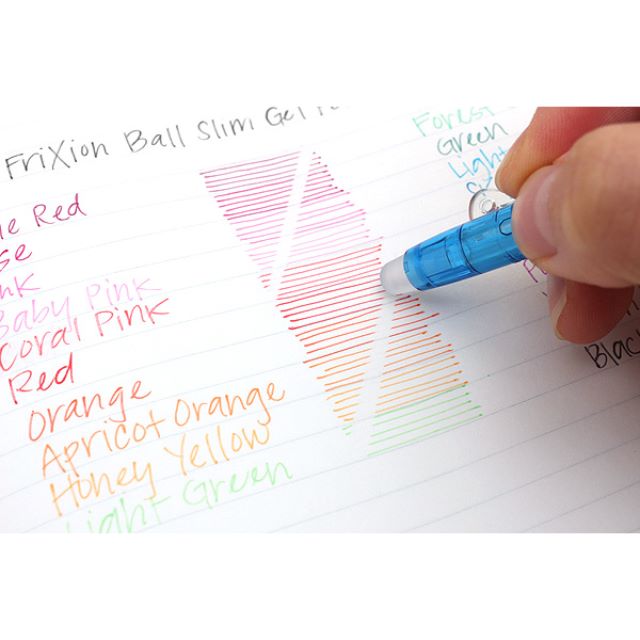 FriXion Ball Slim Gel
Red
Baby Pink
Coral Pink
Red
Orange
Apricot Orange
Honey Yellow
Light Green
Forest
Green
Light